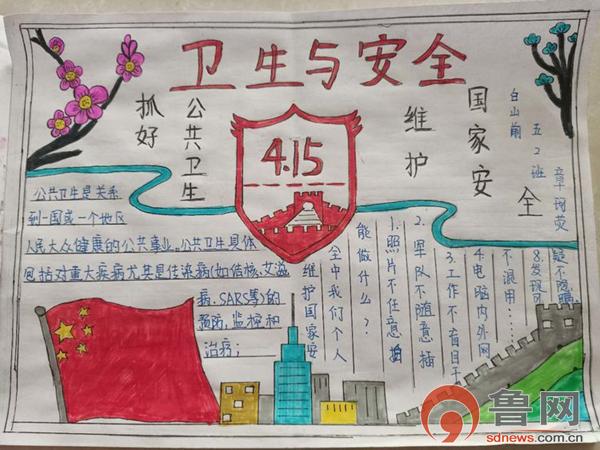 卫生与安全
抓好
公共卫生
4.15
维护
国家安全
白山前
五2班
公共卫生是关系
到一国或一个地区
人民大众健康的公共事业。公共卫生具体
包括对重大疾病尤其是传染病(如结核、艾滋
病、SARS等)的
预防、监控和
治疗;
维护国家安
全中我们个人
能做什么?
1.照片不任意拍
2.军队不随意插
3.工作不盲目干
4.电脑内外网
不混用:……
8.发现可
疑不隐瞒
鲁网
sdnews.com.cn